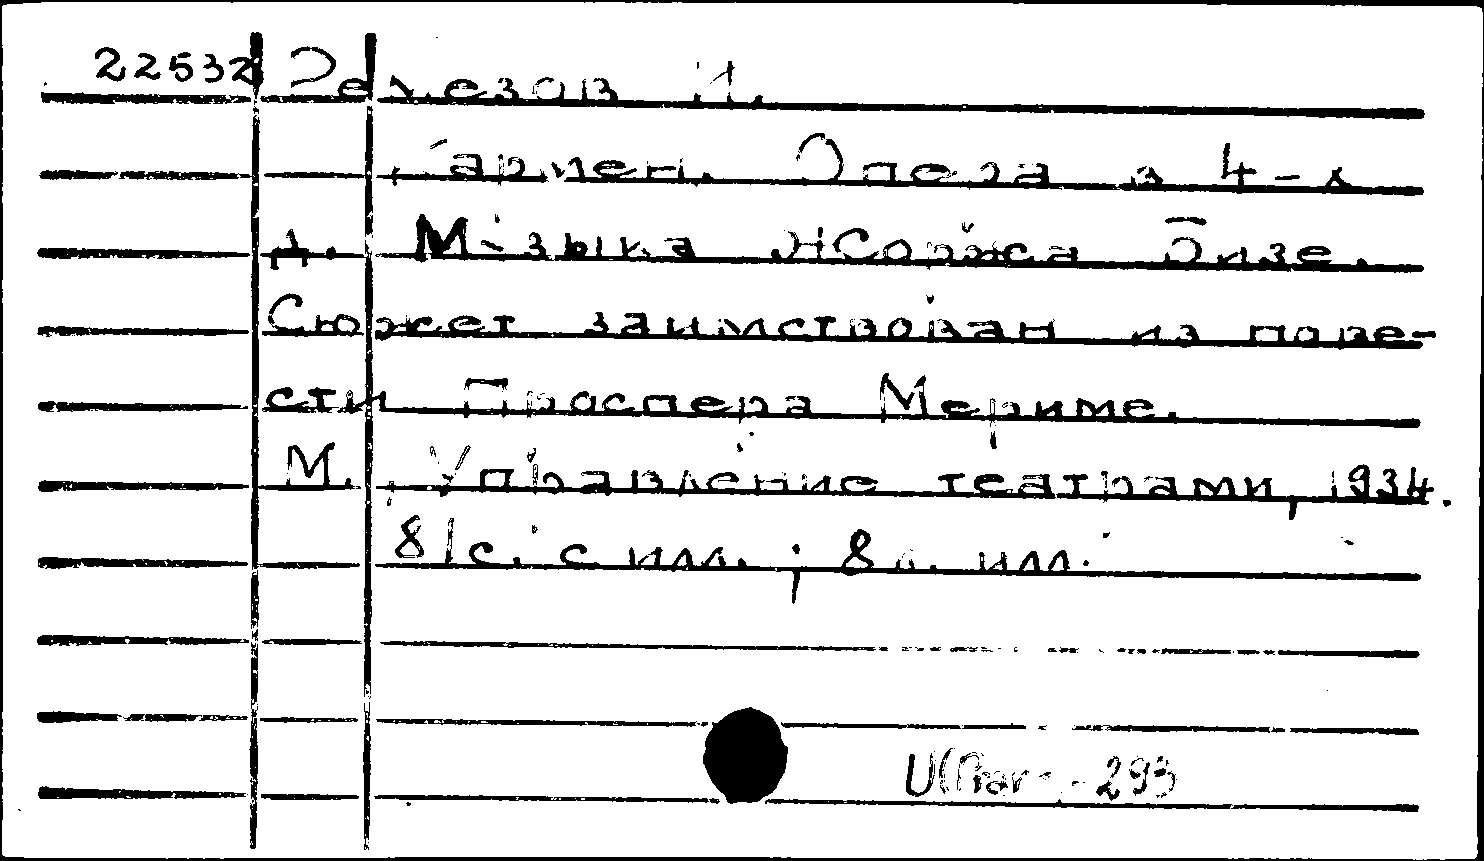 22532 Ремезов И.
Кармен. Опера в 4-х
д. Музыка Жоржа Бизе.
Сюжет заимствован из пове-
сти Проспера Мериме.
М., Управление театрами, 1934.
81с. с илл.; 8 л. илл.
293